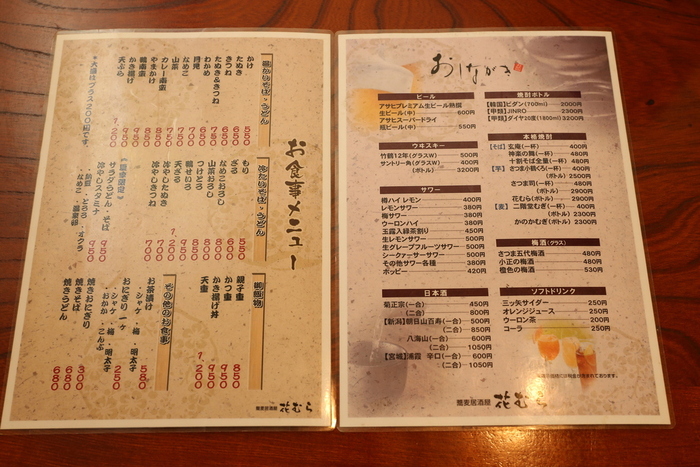 お食事メニュー
温かいそば・うどん
かけ 550
たぬき
きつね
たぬき&きつね
わかめ
月見
なめこ
山菜
カレー南蛮
やまかけ
鴨南蛮
かき揚げ
天ぷら 1,200
冷たいそば・うどん
もり 550
ざる 600
なめこおろし
山菜おろし
つけとろ
鴨せいろ
天ざる 1,200
冷やしたぬき 700
冷やしきつね 700
サラダうどん・そば 950
冷やしスタミナ 950
・納豆・とろろ・オクラ
なめこ・温泉卵
御飯物
親子重 850
かつ重 950
かき揚げ丼 950
天重 1,200
その他のお食事
お茶漬け 580
・シャケ・梅・明太子
おにぎり一ヶ 250
・シャケ・梅・明太子
・おかか・こんぶ
焼きおにぎり 300
焼きそば 680
焼きうどん 680
蕎麦居酒屋 花むら
おしながき
ビール
アサヒプレミアム生ビール熟撰
生ビール(中) 600円
アサヒスーパードライ
瓶ビール(中) 550円
ウヰスキー
竹鶴12年(グラスW) 500円
サントリー角(グラスW) 400円
(ボトル) 3200円
サワー
樽ハイ レモン 400円
レモンサワー 380円
梅サワー 380円
ウーロンハイ 380円
玉露入り緑茶割り 450円
生レモンサワー 500円
生グレープフルーツサワー 500円
シークァーサーサワー 500円
その他サワー各種 380円
ホッピー 420円
日本酒
菊正宗(一合) 450円
(二合) 800円
【新潟】朝日山百寿(一合) 500円
(二合) 850円
八海山(一合) 600円
(二合) 1050円
【宮城】浦霞 辛口(一合) 600円
(二合) 1050円
焼酎ボトル
【韓国】ビダン(700ml) 2000円
【甲類】JINRO 2300円
【甲類】ダイヤ20度(1800ml) 3200円
本格焼酎
【そば】玄庵(一杯) 400円
神楽の舞(一杯) 480円
十割そば全量(一杯) 480円
【芋】さつま小鶴くろ(一杯) 400円
(ボトル) 2400円
さつま司(一杯) 480円
(ボトル) 2900円
花むら(ボトル) 2900円
【麦】二階堂むぎ(一杯) 400円
(ボトル) 2300円
かのかむぎ(ボトル) 2300円
梅酒(グラス)
さつま五代梅酒 480円
小正の梅酒 480円
橙色の梅酒 530円
ソフトドリンク
三ッ矢サイダー 250円
オレンジジュース 250円
ウーロン茶 200円
コーラ 250円
蕎麦居酒屋 花むら